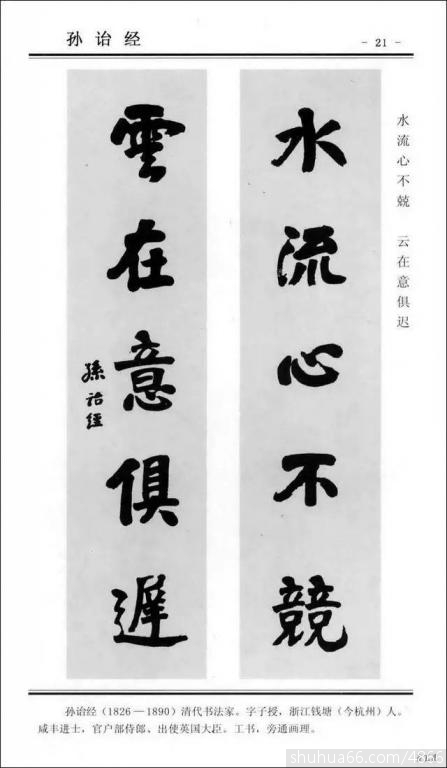 孙诒经
- 21 -
水流心不兢　云在意俱迟
水流心不競
雲在意俱遲
孫詒經
孙诒经（1826—1890）清代书法家。字子授，浙江钱塘（今杭州）人。
咸丰进士，官户部侍郎、出使英国大臣。工书，旁通画理。